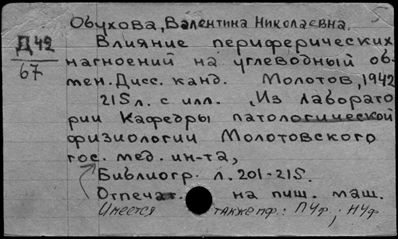 Обухова, Валентина Николаевна.
Д 42
67
Влияние периферических
нагноений на углеводный об-
мен. Дисс. канд. Молотов, 1942
215 л. с илл. „Из лаборато
рии Кафедры патологической
физиологии Молотовского
гос. мед. ин-та,
Библиогр. л. 201-215.
Отпечат. на пиш. маш.
Имеется также пф: ПЧф; НЧф